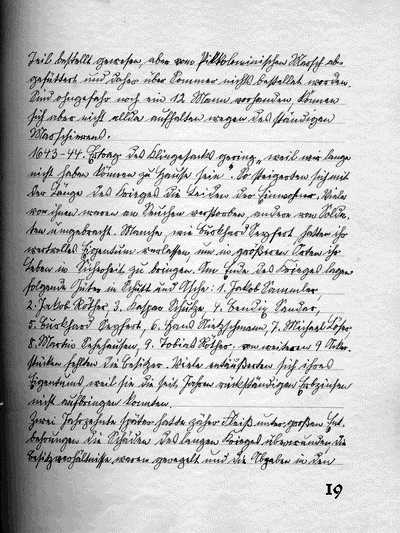 Teil bestellt gewesen, aber vom Piktolominischen Marsch ab-
gefüttert und daher über Sommer nichts bestellet worden.
Sind ohngefähr noch ein 12 Mann vorhanden, können
sich aber nicht allda aufhalten wegen des ständigen
Marschierens.
1643-44. Ertrag des Klingesacks gering, weil wir lange
nicht haben können zu Hause sein". So steigerten sich mit
der Länge des Krieges die Leiden der Einwohner. Viele
von ihnen waren an Seuchen verstorben, andere von Solda-
ten umgebracht. Manche, wie Burkhard Seyfert hatten ihr
wertvolles Eigentum verlassen, um in größeren Orten ihr
Leben in Sicherheit zu bringen. Am Ende des Krieges lagen
folgende Güter in Schutt und Asche: 1. Jakob Sammler,
2. Jakob Röther, 3. Kaspar Schütze, 4. Bendix Sander,
5. Burkhard Seyfert, 6. Hans Nietzschmann, 7. Michael
8. Martin 9. Tobias Röther. von weiteren 9
fehlten die Besitzer. Viele entäußerten sich ihres
Eigentums weil sie die seit Jahren rückständigen Erbzinsen
nicht aufbringen konnten.
Zwei Jahrzehnte später hatte zäher Fleiß unter großen Ent-
behrungen die Schäden des langen Krieges überwunden, die
Besitzverhältnisse waren geregelt und die Abgaben in den
19